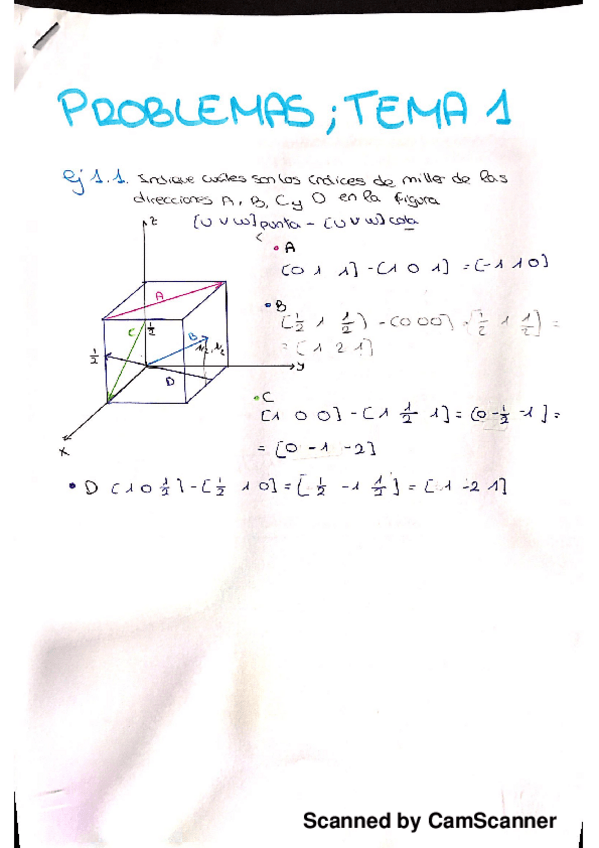 PROBLEMAS; TEMA 1
Ej 1.1. Indique cuáles son los índices de miller de las
direcciones A, B, C y D en la figura
[U V W] punta - [U V W] cola
z
A
C
1/2
B
1/2
D
y
x
• A
[0 1 1] - [1 0 1] = [-1 1 0]
• B
[1/2 1 1/2] - [0 0 0] = [1/2 1 1/2] =
= [1 2 1]
• C
[1 0 0] - [1 1/2 1] = [0 -1/2 -1] =
= [0 -1 -2]
• D [1 0 1/2] - [1/2 1 0] = [1/2 -1 1/2] = [1 -2 1]
Scanned by CamScanner